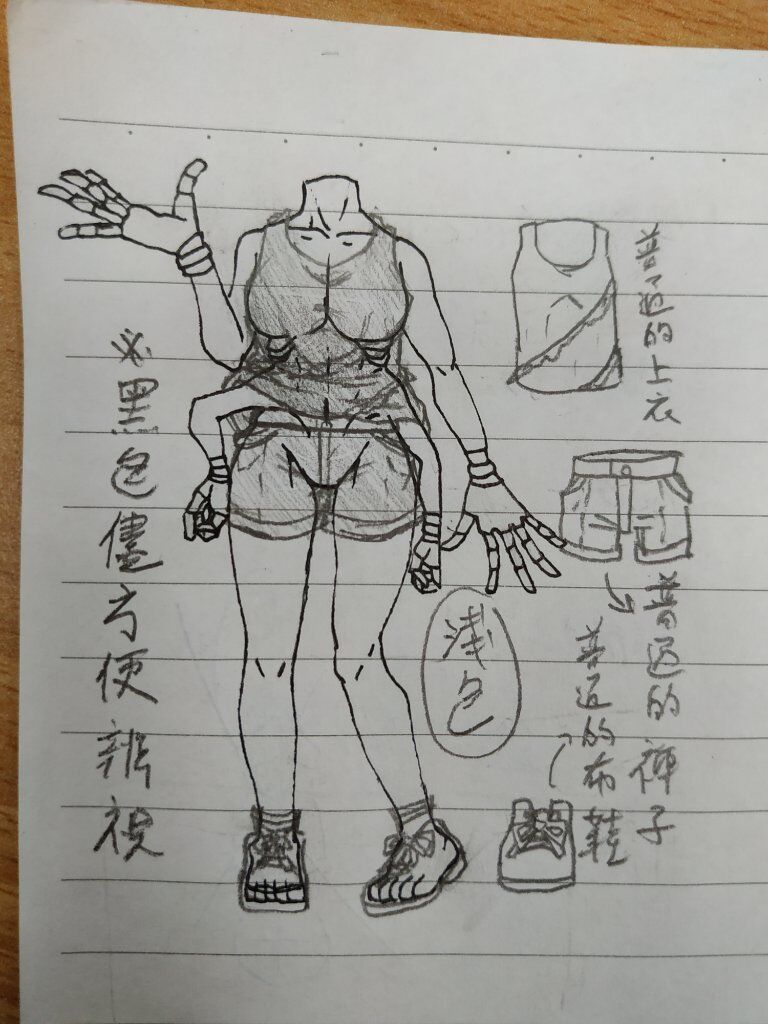 普通的上衣
※黑色僅方便辨視
淺色
普通的褲子
普通的布鞋